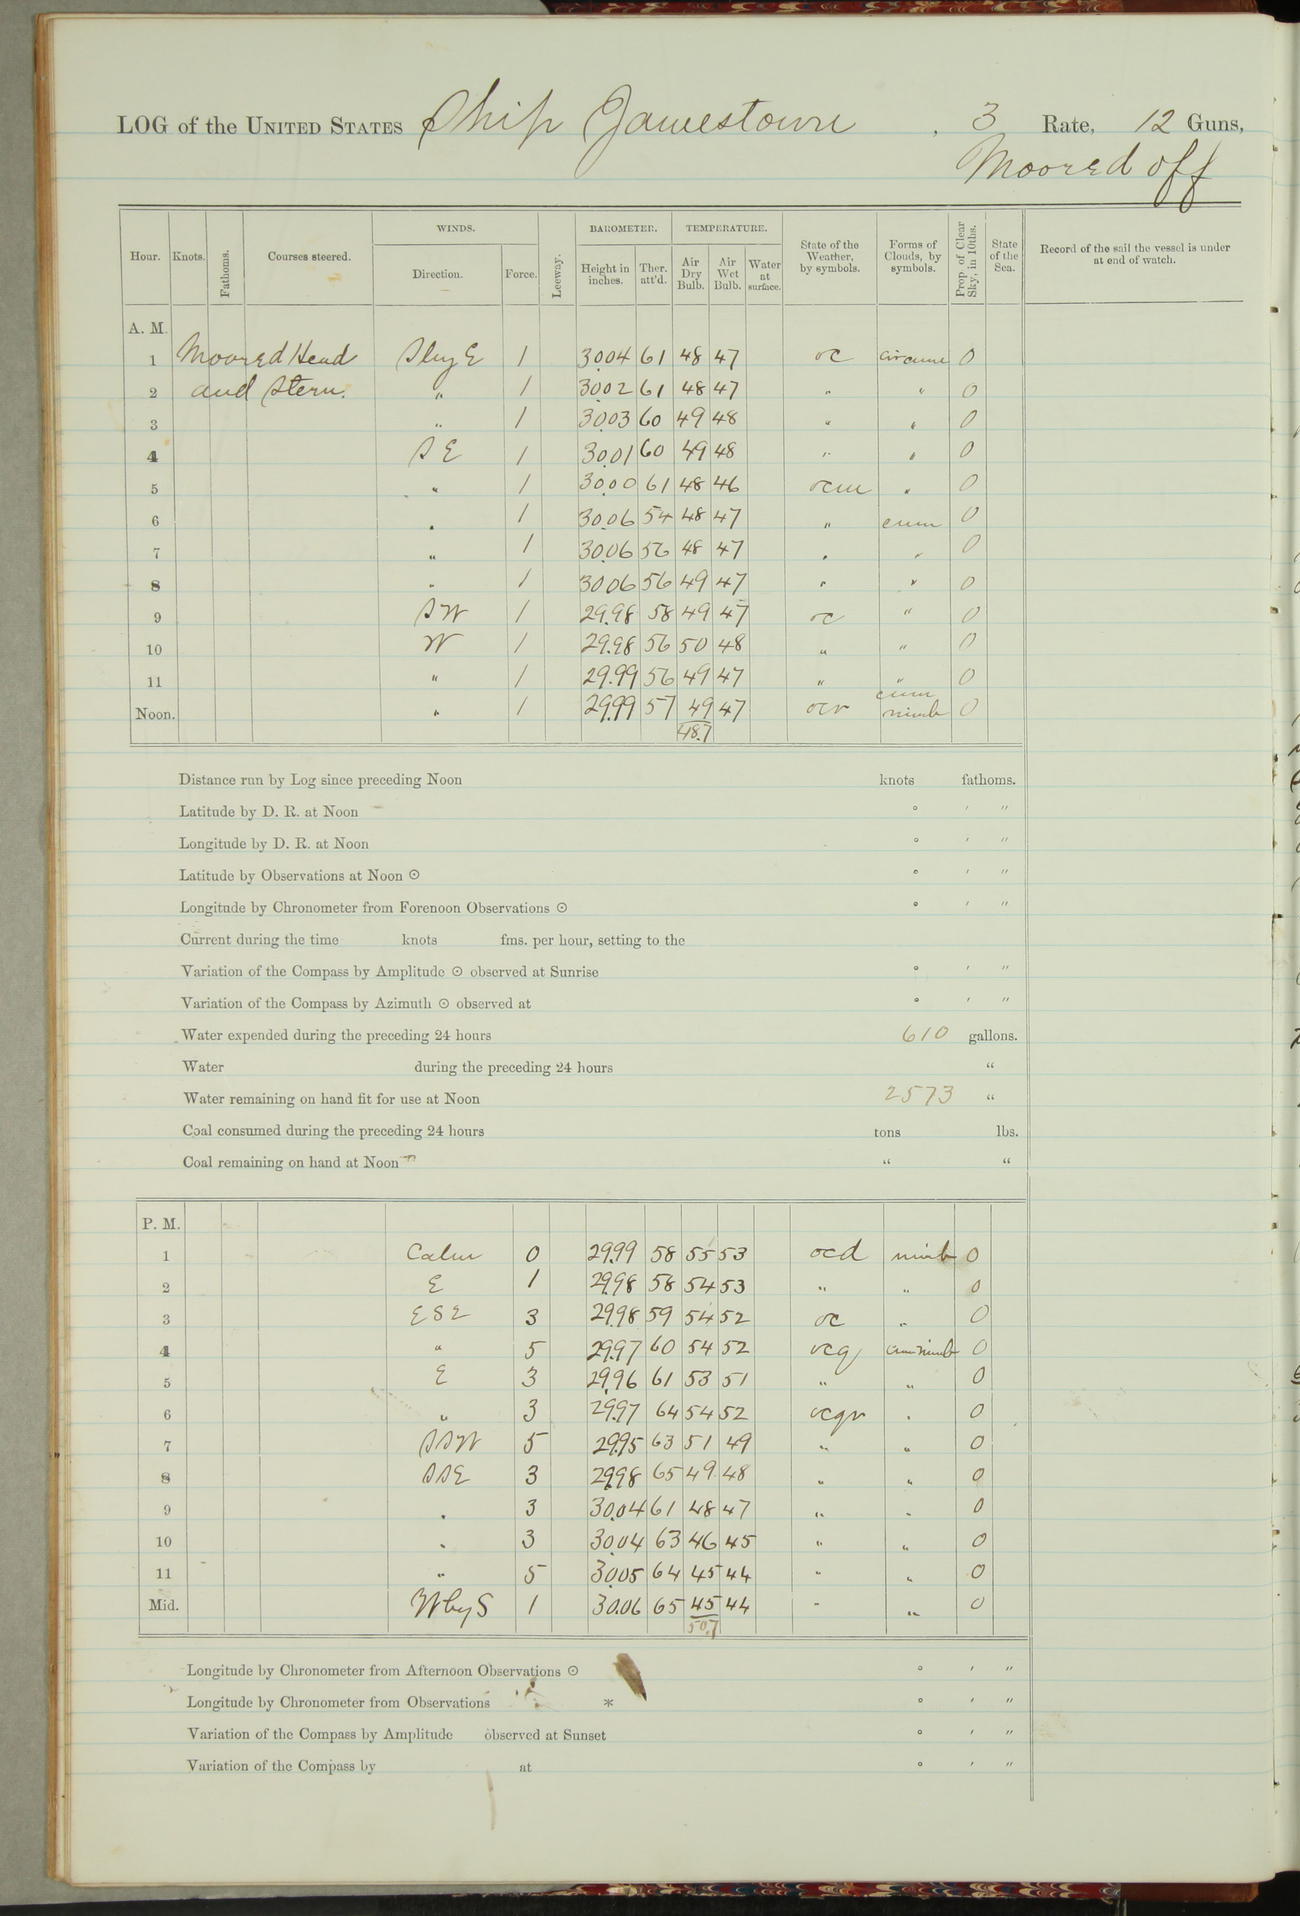 LOG of the UNITED STATES Ship Jamestown, 3 Rate, 12 Guns,
Moored off
Hour. Knots. Fathoms. Courses steered. WINDS. Direction. Force. Leeway. BAROMETER. Height in inches. Ther. att'd. TEMPERATURE. Air Dry Bulb. Air Wet Bulb. Water at surface. State of the Weather, by symbols. Forms of Clouds, by symbols. Prop. of Clear Sky, in 10ths. State of the Sea. Record of the sail the vessel is under at end of watch.
A. M.
1 Moored Head S by E 1 30.04 61 48 47 oc cir cum 0
2 and Stern. " 1 30.02 61 48 47 " " 0
3 " 1 30.03 60 49 48 " " 0
4 S E 1 30.01 60 49 48 " " 0
5 " 1 30.00 61 48 46 ocm " 0
6 " 1 30.06 54 48 47 " cum 0
7 " 1 30.06 56 48 47 " " 0
8 " 1 30.06 56 49 47 " " 0
9 S W 1 29.98 58 49 47 oc " 0
10 W 1 29.98 56 50 48 " " 0
11 " 1 29.99 56 49 47 " " 0
Noon. " 1 29.99 57 49 47 ocr cum nimb 0
48.7
Distance run by Log since preceding Noon knots fathoms.
Latitude by D. R. at Noon ° ′ ″
Longitude by D. R. at Noon ° ′ ″
Latitude by Observations at Noon ⊙ ° ′ ″
Longitude by Chronometer from Forenoon Observations ⊙ ° ′ ″
Current during the time knots fms. per hour, setting to the
Variation of the Compass by Amplitude ⊙ observed at Sunrise ° ′ ″
Variation of the Compass by Azimuth ⊙ observed at ° ′ ″
Water expended during the preceding 24 hours 610 gallons.
Water during the preceding 24 hours "
Water remaining on hand fit for use at Noon 2573 "
Coal consumed during the preceding 24 hours tons lbs.
Coal remaining on hand at Noon " "
P. M.
1 Calm 0 29.99 58 55 53 ocd nimb 0
2 E 1 29.98 58 54 53 " " 0
3 E S E 3 29.98 59 54 52 oc " 0
4 " 5 29.97 60 54 52 ocq cum nimb 0
5 E 3 29.96 61 53 51 " " 0
6 " 3 29.97 64 54 52 ocqr " 0
7 S S W 5 29.95 63 51 49 " " 0
8 S S E 3 29.98 65 49 48 " " 0
9 " 3 30.04 61 48 47 " " 0
10 " 3 30.04 63 46 45 " " 0
11 " 5 30.05 64 45 44 " " 0
Mid. W by S 1 30.06 65 45 44 " " 0
50.7
Longitude by Chronometer from Afternoon Observations ⊙ ° ′ ″
Longitude by Chronometer from Observations * ° ′ ″
Variation of the Compass by Amplitude observed at Sunset ° ′ ″
Variation of the Compass by at ° ′ ″